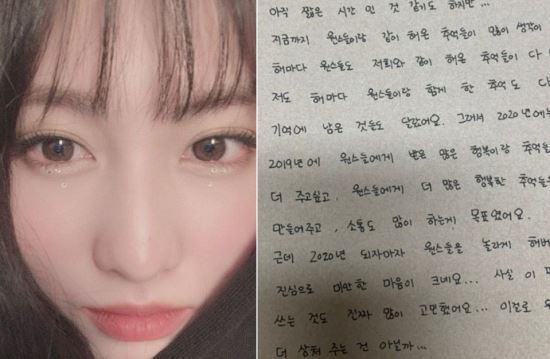 아직 짧은 시간 인 것 같기도 하지만...
지금까지 원스들이랑 같이 해온 추억들이 많이 생각이
해마다 원스들도 저희와 같이 해온 추억들이 다
저도 해마다 원스들이랑 함께 한 추억도 다
기억에 남은 것들도 달랐어요. 그래서 2020년에는
2019년에 원스들에게 받은 많은 행복이랑 추억들
더 주고싶고, 원스들에게 더 많은 행복한 추억들
만들어주고, 소통도 많이 하는게 목표였어요.
근데 2020년 되자마자 원스들을 놀라게 해버
진심으로 미안한 마음이 크네요... 사실 이
쓰는 것도 진짜 많이 고민했어요... 이걸로
더 상처 주는 건 아닐까...